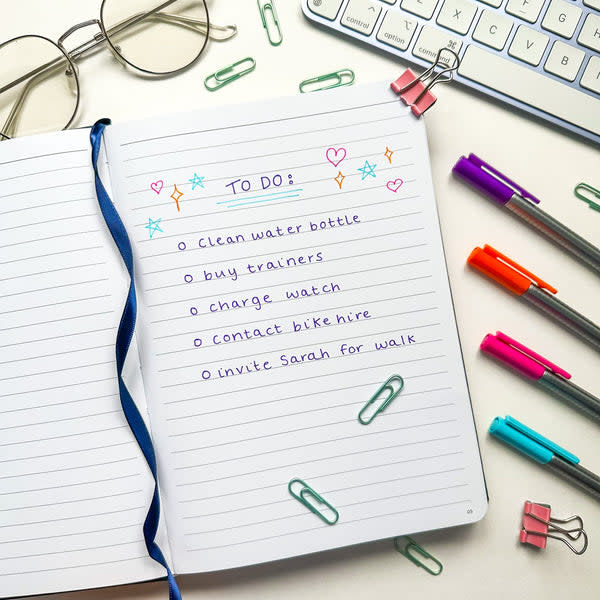 control
option
command ⌘
Z
X
C
V
B
F
G
H
N
TO DO:
o clean water bottle
o buy trainers
o charge watch
o contact bike hire
o invite Sarah for walk